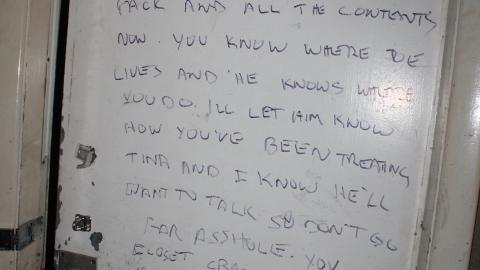 PACK AND ALL THE CONTENTS
NOW. YOU KNOW WHERE JOE
LIVES AND HE KNOWS WHERE
YOU DO. I'LL LET HIM KNOW
HOW YOU'VE BEEN TREATING
TINA AND I KNOW HE'LL
WANT TO TALK SO DON'T GO
FAR ASSHOLE. YOU
CLOSET